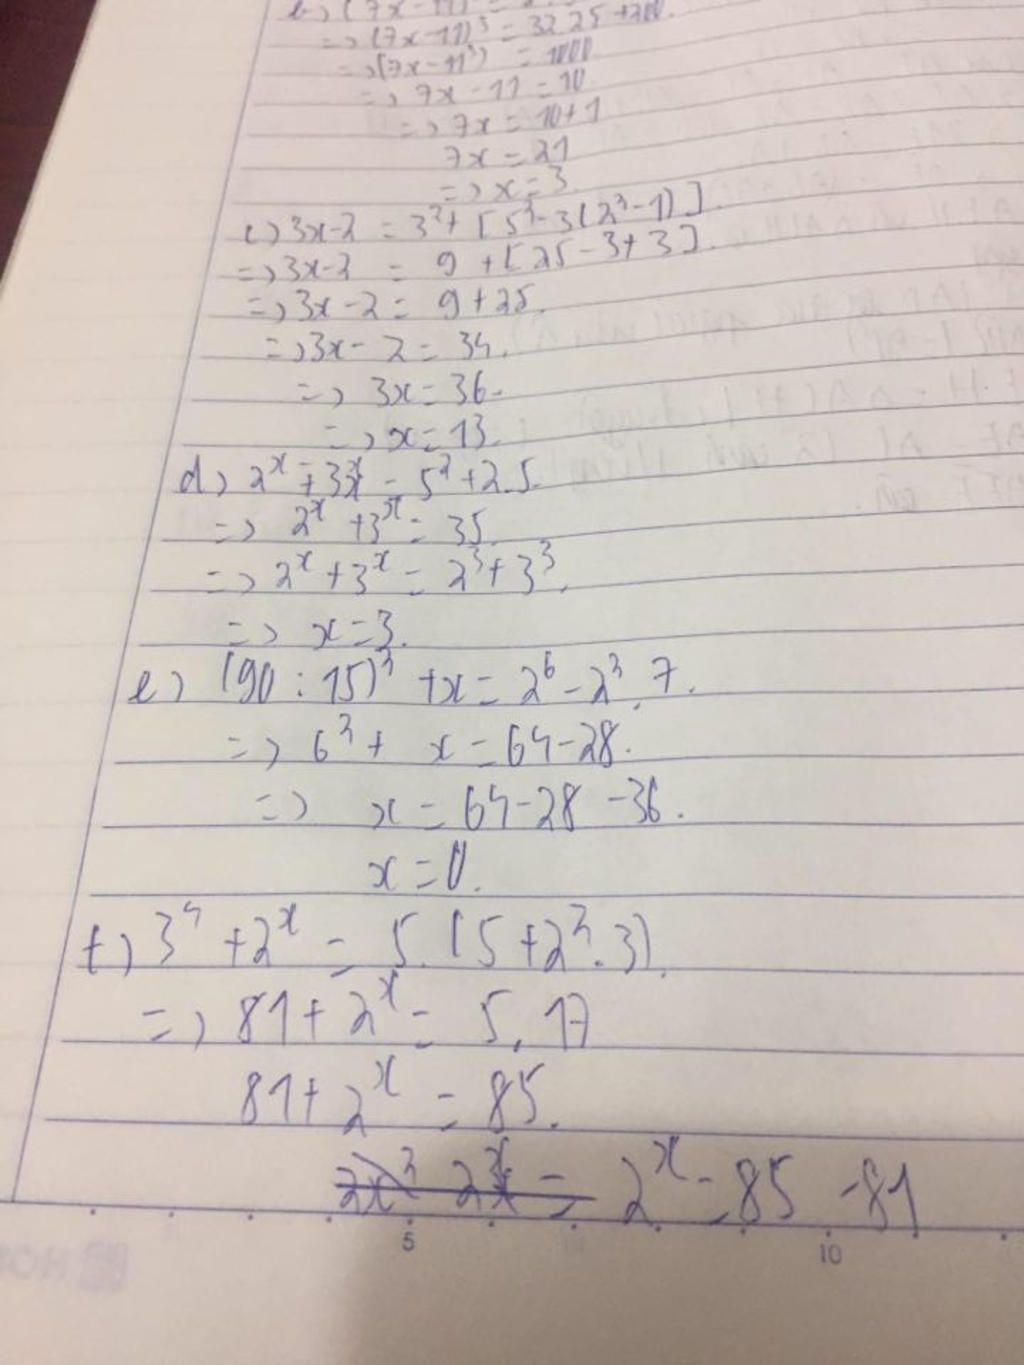 b) (7x-11)
=> (7x-11)³ = 32.25+200.
=> (7x-11³) = 1000
=> 7x-11 = 10
=> 7x = 10+1
7x = 21
=> x=3
c) 3x-2 = 3²+[5²-3(2²-1)].
=> 3x-2 = 9+[25-3+3].
=> 3x-2 = 9+25.
=> 3x-2 = 34.
=> 3x=36.
=> x=13.
d) 2ˣ+3ˣ = 5²+2.5.
=> 2ˣ+3ˣ = 35.
=> 2ˣ+3ˣ = 2³+3³.
=> x=3.
e) (90:15)² +x = 2⁶-2³.7.
=> 6²+ x = 64-28.
=> x = 64-28-36.
x=0.
f) 3⁴+2ˣ = 5.(5+2².3).
=> 81+2ˣ = 5.17
81+2ˣ = 85.
2ˣ = 85-81
5 10